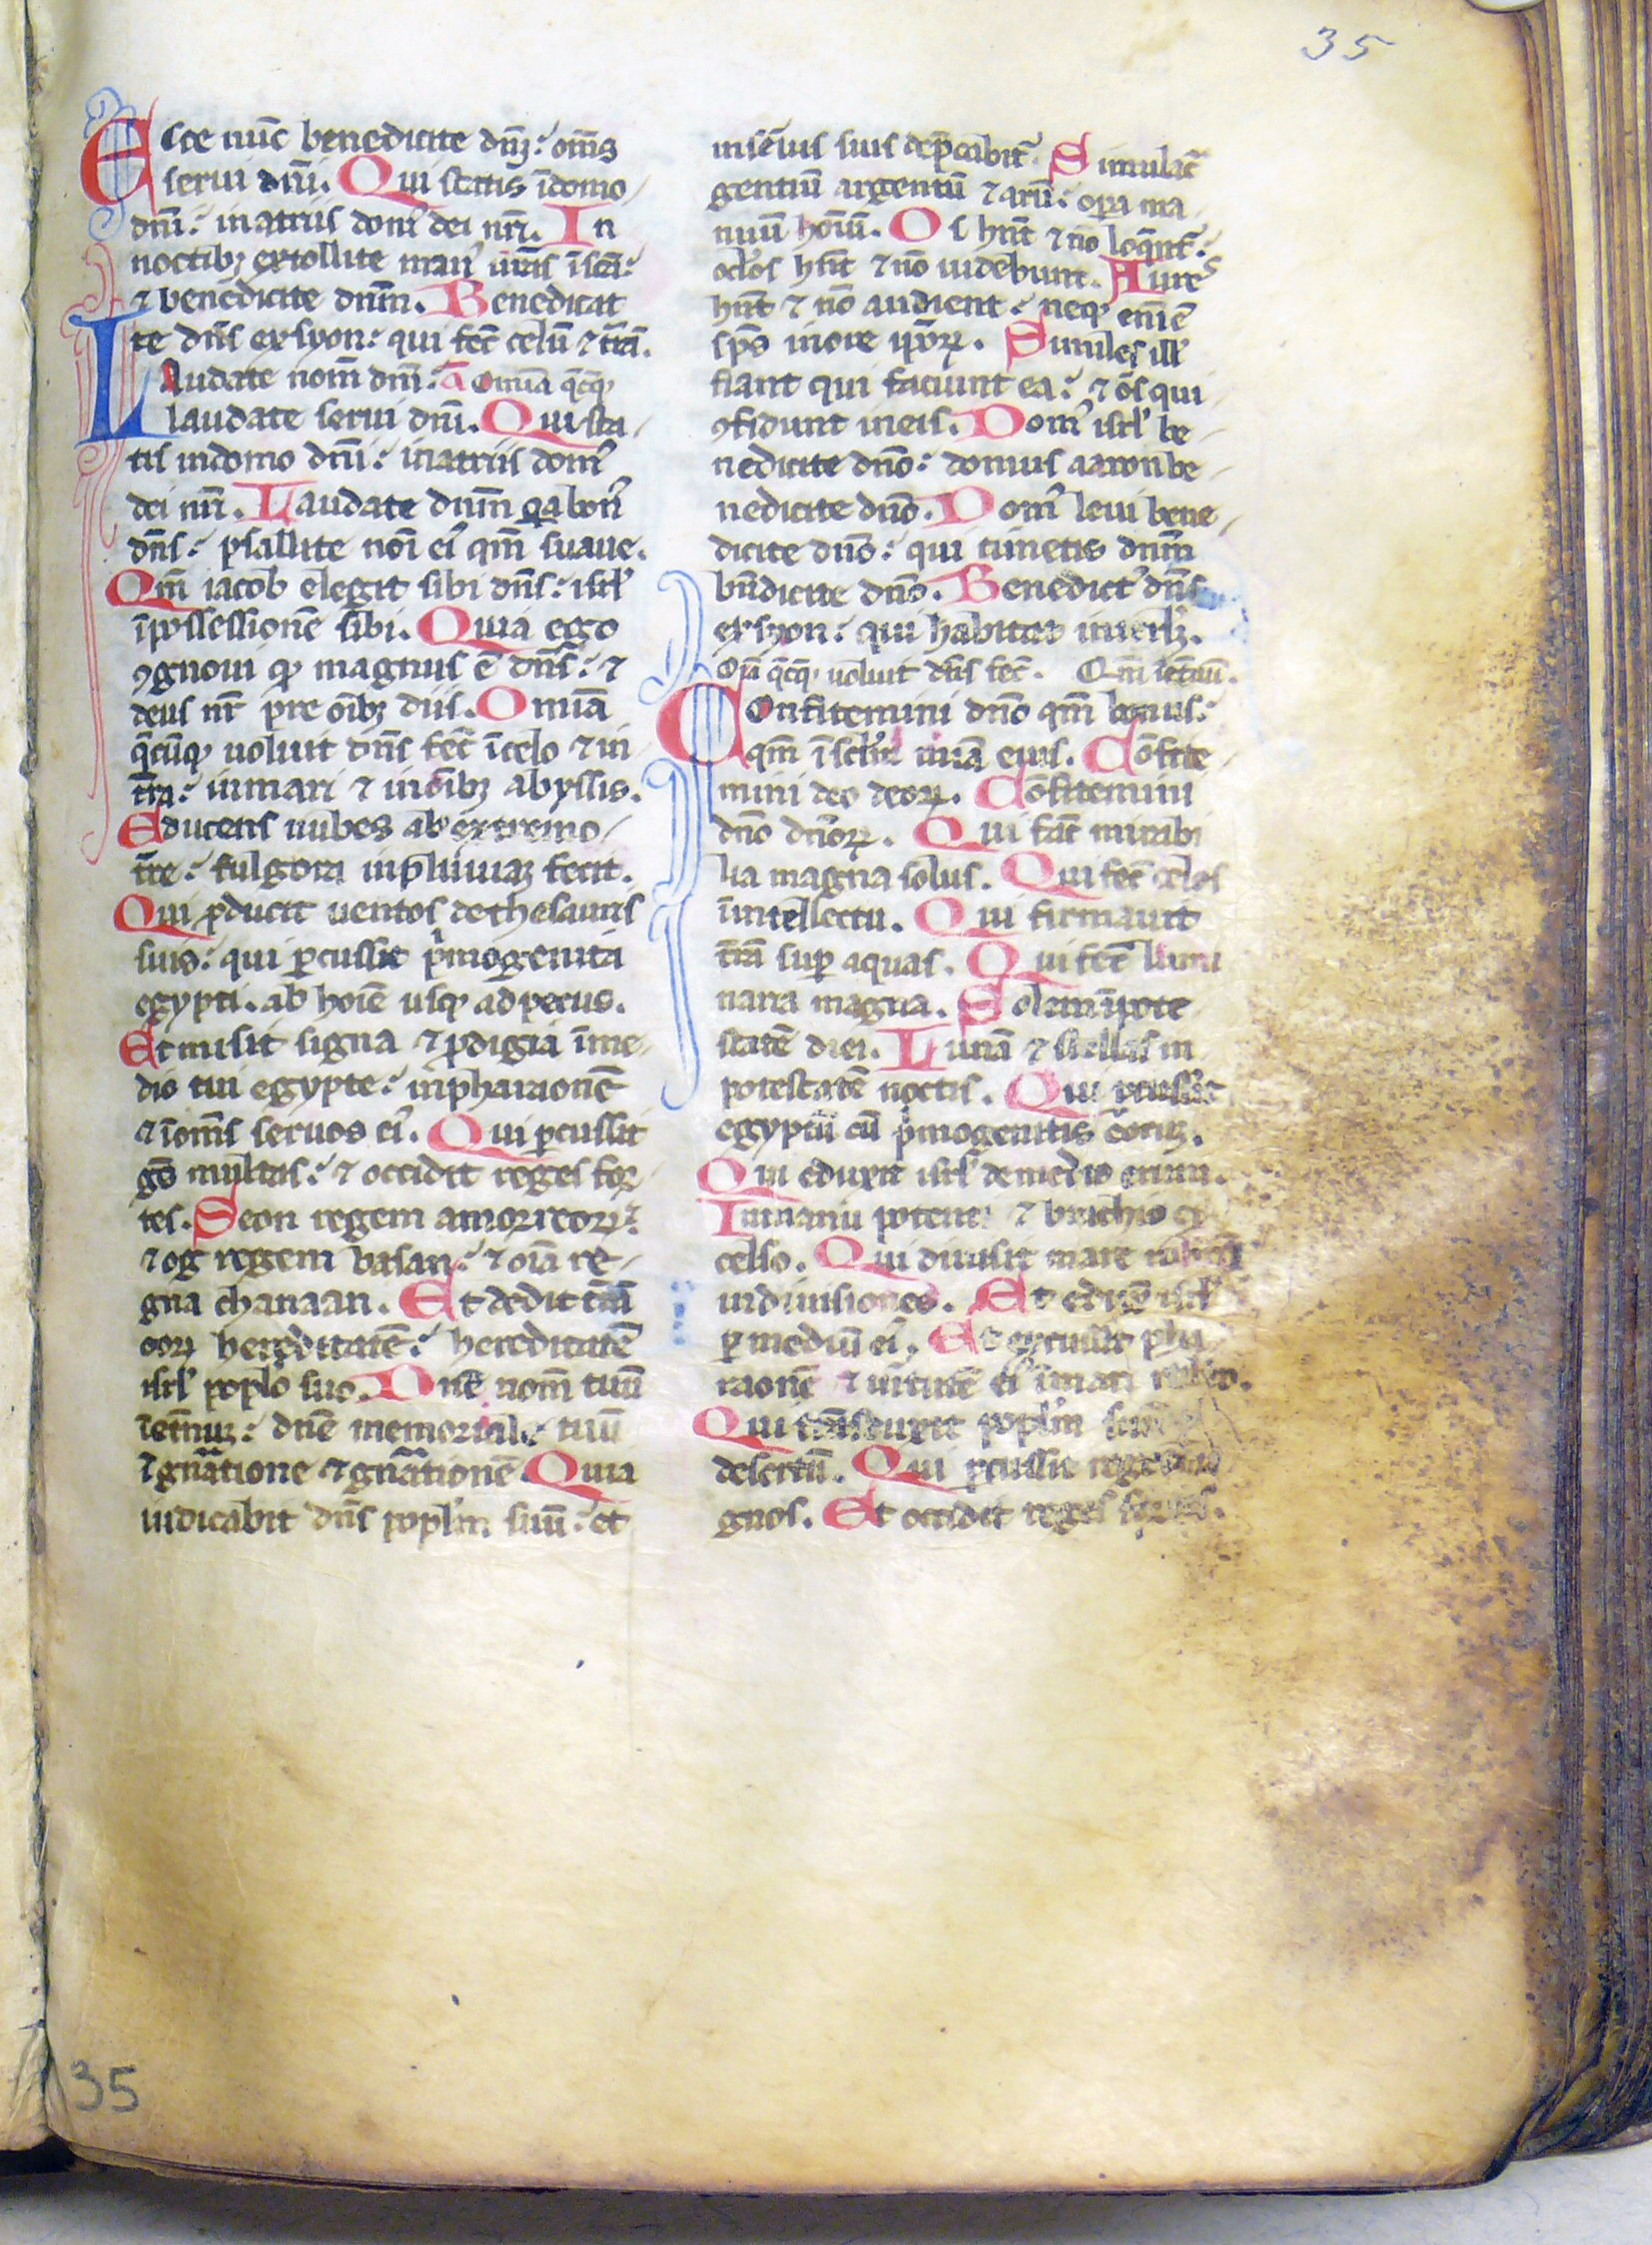 35
Ecce nūc benedicite dnȝ: om̄s
serui dn̄i. Qui statis ī domo
dn̄i: in atriis domꝰ dei nr̄i. In
noctibȝ extollite manꝰ ūr̄as ī sc̄a:
⁊ benedicite dnm̄. Benedicat
te dn̄s ex syon: qui fec̄ celū ⁊ t̄rā.
Laudate nom̄ dn̄i: a̅ Omīa q̄cq̨
laudate serui dn̄i. Qui sta
tis in domo dn̄i: in atriis domꝰ
dei nr̄i. Laudate dnm̄ qa bonꝰ
dn̄s: psallite noī eiꝰ qm̄ suaue.
Qm̄ iacob elegit sibi dn̄s: isrl̄
ī possessionē sibi. Quia ego
ꝯgnoui ꝙ magnus ē dn̄s: ⁊
deus nr̄ pre oībȝ diis. Omīa
q̄cūq̨ uoluit dn̄s fec̄ ī celo ⁊ in
t̄ra: in mari ⁊ in oībȝ abyssis.
Educens nubes ab extremo
t̄re: fulgora in pluuiaȝ fecit.
Qui ꝓducit uentos de thesauris
suis: qui ꝑcussit pͥmogenita
egypti. ab hoīe usq̨ ad pecus.
Et misit signa ⁊ ꝓdigia ī me
dio tui egypte: in pharaonē
⁊ ī om̄s seruos eiꝰ. Qui ꝑcussit
gēs multas: ⁊ occidit reges for
tes. Seon regem amorreoꝝ:
⁊ og regem basan: ⁊ oīa re
gna chanaan. Et dedit t̄rā
eoꝝ hereditatē: hereditatē
isrl̄ poplo suo. Dn̄e nom̄ tuū
ī et̄nuȝ: dn̄e memoriale tuū
ī gn̄atione ⁊ gn̄ationē. Quia
iudicabit dn̄s popl̄m suū: et
in s̄euis suis dep̄cabit̄. Simulac̄
gentiū argentū ⁊ arū: opera ma
nuū hoīuū. Os hn̄t ⁊ nō loq̄nt̄:
ocl̄os hn̄t ⁊ nō uidebunt. Aures
hn̄t ⁊ nō audient: neq̨ enī ē
sp̄s in ore ip̄oꝝ. Similes illꝰ
fiant qui faciunt ea: ⁊ ōs qui
ꝯfidunt in eis. Domꝰ isrl̄ be
nedicite dn̄o: domus aaron be
nedicite dn̄o. Domꝰ leui bene
dicite dn̄o: qui timetis dnm̄
bn̄dicite dn̄o. Benedictꝰ dn̄s
ex syon: qui habitat in ierl̄ȝ.
Oīa q̄cq̨ uoluit dn̄s fec̄. Qm̄ ī et̄nū.
Confitemini dn̄o qm̄ bonus:
qm̄ ī sc̄lm mīa eius. Cōfite
mini deo deoꝝ. Cōfitemini
dn̄o dn̄oꝝ. Qui fac̄ mirabi
lia magna solus. Qui fec̄ celos
ī intellectu. Qui firmauit
t̄rā suꝑ aquas. Qui fec̄ lumi
naria magna. Solem ī pote
statē diei. Lunā ⁊ stellas in
potestatē noctis. Qui ꝑcussit
egyptū cū pͥmogenitis eoruȝ.
Qui eduxit isrl̄ de medio eorum.
In manu potenti ⁊ brachio ex
celso. Qui diuisit mare rubrū
in diuisiones. Et eduxē isrl̄
ꝑ mediū eiꝰ. Et excussit pha
raonē ⁊ uirtutē eiꝰ ī mari rubro.
Qui t̄nsduxit popl̄m
desertū. Qui ꝑcussit reges
gnos. Et occidit reges fortes.
35